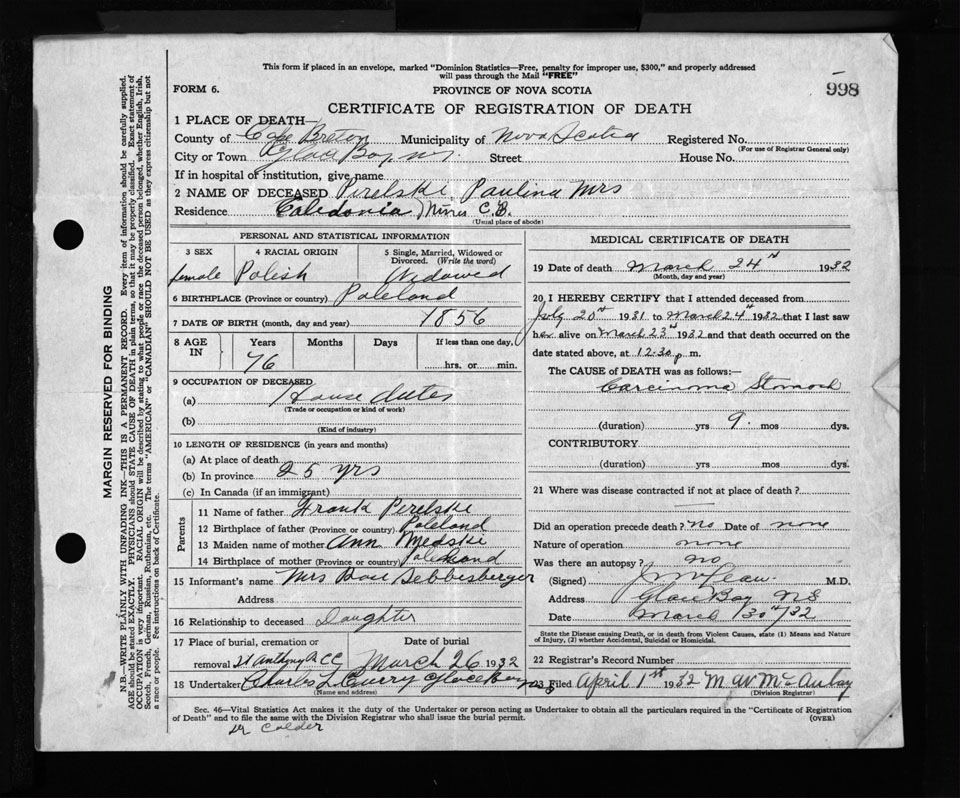 This form if placed in an envelope, marked "Dominion Statistics—Free, penalty for improper use, $300," and properly addressed
will pass through the Mail "FREE"
998
FORM 6.
PROVINCE OF NOVA SCOTIA
CERTIFICATE OF REGISTRATION OF DEATH
1 PLACE OF DEATH—
County of Cape Breton Municipality of Nova Scotia Registered No.
(For use of Registrar General only)
City or Town Glace Bay N.S. Street House No.
If in hospital of institution, give name
2 NAME OF DECEASED Perelski Paulina Mrs
Residence Caledonia Mines C.B.
(Usual place of abode)
PERSONAL AND STATISTICAL INFORMATION
3 SEX 4 RACIAL ORIGIN 5 Single, Married, Widowed or
Divorced. (Write the word)
female Polish Widowed
6 BIRTHPLACE (Province or country) Poleland
7 DATE OF BIRTH (month, day and year) 1856
8 AGE IN Years Months Days If less than one day,
76 hrs. or min.
9 OCCUPATION OF DECEASED
(a) House duties
(Trade or occupation or kind of work)
(b)
(Kind of industry)
10 LENGTH OF RESIDENCE (in years and months)
(a) At place of death
(b) In province 25 yrs
(c) In Canada (if an immigrant)
Parents
11 Name of father Frank Perelski
12 Birthplace of father (Province or country) Poleland
13 Maiden name of mother Ann Medski
14 Birthplace of mother (Province or country) Poleland
15 Informant's name Mrs
Address
16 Relationship to deceased Daughter
17 Place of burial, cremation or Date of burial
removal St Anthony R.C.C. March 26 1932
18 Undertaker Charles L Curry Glace Bay NS
(Name and address)
MEDICAL CERTIFICATE OF DEATH
19 Date of death March 24th 1932
(Month, day and year)
20 I HEREBY CERTIFY that I attended deceased from
July 20th 1931 to March 24th 1932 that I last saw
her alive on March 23rd 1932 and that death occurred on the
date stated above, at 12.30 p. m.
The CAUSE of DEATH was as follows:—
Carcinoma Stomach
(duration) yrs 9. mos dys.
CONTRIBUTORY
(duration) yrs mos dys.
21 Where was disease contracted if not at place of death?
Did an operation precede death? no Date of none
Nature of operation none
Was there an autopsy? no
(Signed) M.D.
Address Glace Bay NS
Date March 30th/32
State the Disease causing Death, or in death from Violent Causes, state (1) Means and Nature
of Injury, (2) whether Accidental, Suicidal or Homicidal.
22 Registrar's Record Number
23 Filed April 1st 1932 M. W. McAulay
(Division Registrar)
Sec. 46—Vital Statistics Act makes it the duty of the Undertaker or person acting as Undertaker to obtain all the particulars required in the "Certificate of Registration
of Death" and to file the same with the Division Registrar who shall issue the burial permit. (OVER)
Dr Calder
MARGIN RESERVED FOR BINDING
N.B.—WRITE PLAINLY WITH UNFADING INK—THIS IS A PERMANENT RECORD. Every item of information should be carefully supplied.
AGE should be stated EXACTLY. PHYSICIANS should STATE CAUSE OF DEATH in plain terms, so that it may be properly classified. Exact statement of
OCCUPATION is very important. RACIAL ORIGIN will be described by stating to what people or race the deceased person belonged, whether English, Irish,
Scotch, French, German, Russian, Ruthenian, etc. The terms "AMERICAN" or "CANADIAN" SHOULD NOT BE USED as they express citizenship but not
a race or people. See instructions on back of Certificate.